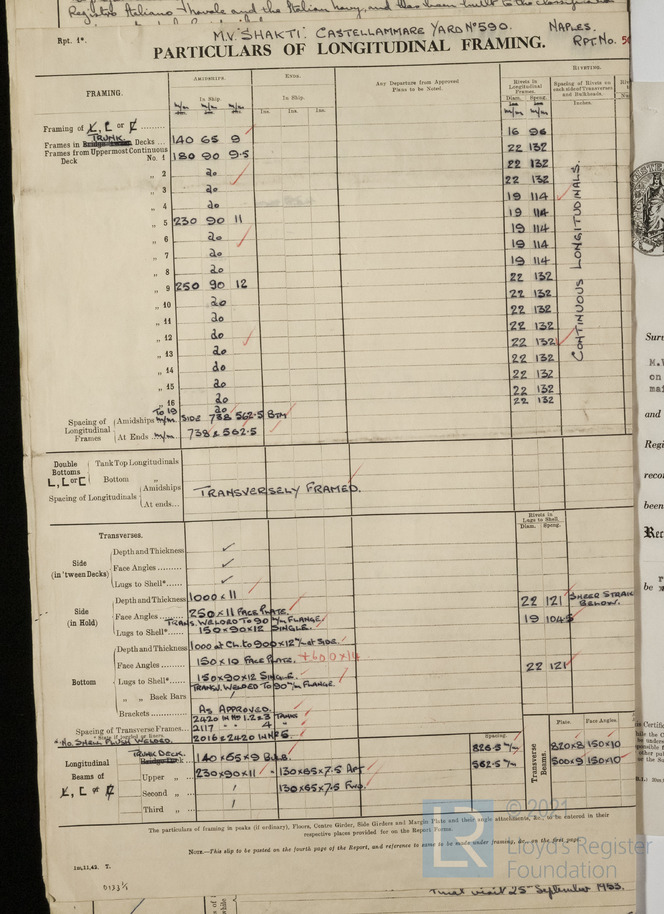 Registro Italiano Navale and the Italian Navy, and has been built to the classification
M.V. "SHAKTI". CASTELLAMMARE YARD No 590. NAPLES.
Rpt. 1*. RPT. No. 5
PARTICULARS OF LONGITUDINAL FRAMING.
FRAMING. AMIDSHIPS. ENDS. Any Departure from Approved Plans to be Noted. RIVETING.
In Ship. In Ship. Rivets in Longitudinal Frames. Spacing of Rivets on each side of Transverses and Bulkheads.
m/m m/m m/m Ins. Ins. Ins. Diam. Speng. Inches.
m/m m/m
Framing of L, [ or ........ 16 96
TRUNK
Frames in Decks ... 140 65 9 22 132
Frames from Uppermost Continuous Deck No. 1 180 90 9.5 22 132
„ 2 do 22 132
„ 3 do 19 114
„ 4 do 19 114
„ 5 230 90 11 19 114
„ 6 do 19 114
„ 7 do 19 114
„ 8 do 22 132
„ 9 250 90 12 22 132
„ 10 do 22 132
„ 11 do 22 132
„ 12 do 22 132
„ 13 do 22 132
„ 14 do 22 132
„ 15 do 22 132
„ 16 do 22 132
To 19 do
CONTINUOUS LONGITUDINALS.
Spacing of Longitudinal Frames Amidships m/m SIDE 738 562.5 BTM
At Ends m/m 738 & 562.5
Double Bottoms L, [ or [ Tank Top Longitudinals
Bottom „
Spacing of Longitudinals Amidships TRANSVERSELY FRAMED.
At ends...
Transverses. Rivets in Lugs to Shell.
Diam. Speng.
Side (in 'tween Decks) Depth and Thickness
Face Angles .........
Lugs to Shell*......
Side (in Hold) Depth and Thickness 1000 x 11 22 121 SHEER STRAKE BELOW.
Face Angles ......... 250 x 11 FACE PLATE. 19 104.5
TRANS. WELDED TO 90 m/m FLANGE.
Lugs to Shell*...... 150x90x12 SINGLE.
Bottom Depth and Thickness 1000 at CL. to 900x12 m/m at SIDE.
Face Angles ......... 150 x 10 FACE PLATE. +400x14 22 121
Lugs to Shell*...... 150x90x12 SINGLE.
TRANS. WELDED TO 90 m/m FLANGE.
„ „ Back Bars
Brackets......... AS APPROVED.
Spacing of Transverse Frames... 2420 IN No 1. 2 & 3 TANKS
2117 " " 4 "
2016 & 2420 IN No 5.
* No. SHELL FLUSH WELDED. * State if joggled or liners.
Spacing. Plate. Face Angles.
Longitudinal Beams of TRUNK DECK 140 x 65 x 9 826.5 m/m Transverse Beams. 820x8 150x10
Upper „ 230x90x11 130x65x7.5 AFT 562.5 m/m 500x9 150x10
Second „ 130x65x7.5 FWD.
Third „
The particulars of framing in peaks (if ordinary), Floors, Centre Girder, Side Girders and Margin Plate and their angle attachments, &c., to be entered in their
respective places provided for on the Report Forms.
NOTE.—This slip to be pasted on the fourth page of the Report, and reference to same to be made under framing, &c., on the first page.
1m,11,42. T.
© 2021
LR
Lloyd's Register
Foundation
25 September 1953.